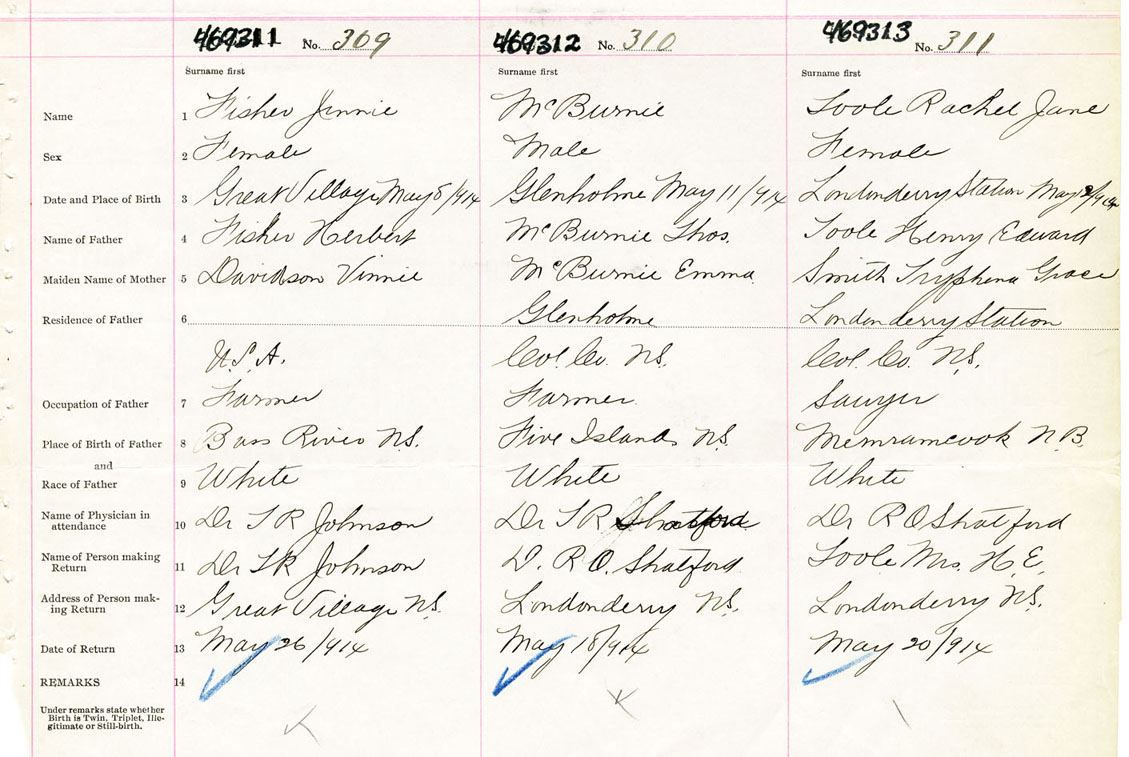 469311 No. 309 469312 No. 310 469313 No. 311
Surname first Surname first Surname first
Name 1 Fisher Jennie McBurnie Toole Rachel Jane
Sex 2 Female Male Female
Date and Place of Birth 3 Great Village May 8/914 Glenholme May 11/914 Londonderry Station May
Name of Father 4 Fisher Herbert McBurnie Thos. Toole Henry Edward
Maiden Name of Mother 5 Davidson Vinnie McBurnie Emma Smith Tryphena Grace
Residence of Father 6 Glenholme Londonderry Station
U.S.A. Col. Co. N.S. Col. Co. N.S.
Occupation of Father 7 Farmer Farmer. Sawyer
Place of Birth of Father 8 Bass River N.S. Five Islands N.S. Memramcook N.B.
and
Race of Father 9 White White White
Name of Physician in
attendance 10 Dr T R Johnson Dr T R Shatford Dr R O Shatford
Name of Person making
Return 11 Dr T R Johnson D. R O. Shatford Toole Mrs. H. E.
Address of Person mak-
ing Return 12 Great Village N.S. Londonderry N.S. Londonderry N.S.
Date of Return 13 May 26/914 May 18/914 May 20/914
REMARKS 14
Under remarks state whether
Birth is Twin, Triplet, Ille-
gitimate or Still-birth.